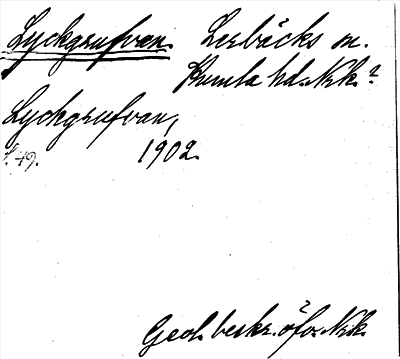 Lyckgrufvan. Lerbäcks sn.
Kumla hd. Nrk.?
Lyckgrufvan,
s. 49. 1902.
Geol. beskr. öfv. Nrk.